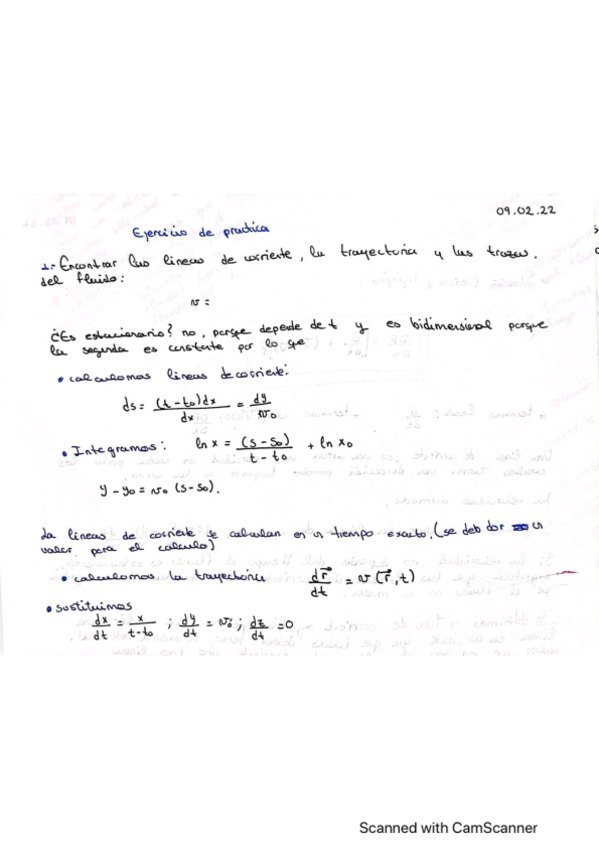 09.02.22
Ejercicio de practica
1.- Encontrar las lineas de corriente, la trayectoria y las trazas.
del fluido:
v =
¿Es estacionario? no, porque depende de t y es bidimensional porque
la segunda es constante por lo que
• calculamos lineas de corriente:
ds = (t - t₀)dx / dx = dy / v₀
• Integramos: ln x = (s - s₀) / t - t₀ + ln x₀
y - y₀ = v₀ (s - s₀).
La lineas de corriente se calculan en un tiempo exacto. (se deb dar un
valor para el calculo)
• calculamos la trayectoria dr⃗ / dt = v (r⃗, t)
• sustituimos
dx / dt = x / t - t₀ ; dy / dt = v₀ ; dz / dt = 0
Scanned with CamScanner